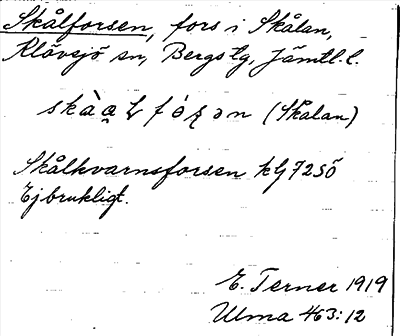 Skålforsen, fors i Skålan,
Klövsjö sn, Bergs tg, Jämtl. l.
skàa̱ɫfórʂən (Skålan)
Skålkvarnsforsen kG 72 SÖ
Ej brukligt.
E. Terner 1919
Ulma 463:12